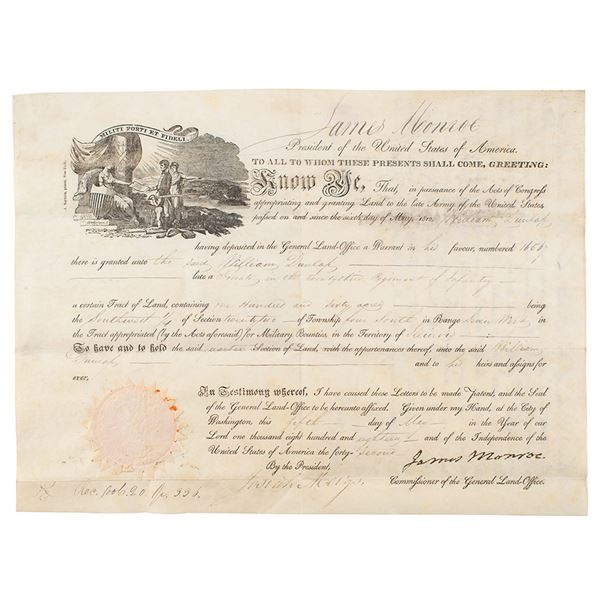 MILITI FORTI ET FIDELI
James Monroe
President of the United States of America.
TO ALL TO WHOM THESE PRESENTS SHALL COME, GREETING:
Know Ye, That, in pursuance of the Acts of Congress
appropriating and granting Land to the late Army of the United States
passed on and since the sixth day of May, 1812, William Dunlap
having deposited in the General Land-Office a Warrant in his favour, numbered
there is granted unto the said William Dunlap
late a Private in the Regiment of Infantry
a certain Tract of Land, containing one Hundred and Sixty acres being
the Southwest 1/4 of Section twenty two of Township four South in Range Seven West in
the Tract appropriated (by the Acts aforesaid) for Military Bounties, in the Territory of Illinois
To have and to hold the said quarter Section of Land, with the appurtenances thereof, unto the said William
Dunlap and to his heirs and assigns for
ever.
In Testimony whereof, I have caused these Letters to be made Patent, and the Seal
of the General Land-Office to be hereunto affixed. Given under my Hand, at the City of
Washington, this fifth day of May in the Year of our
Lord one thousand eight hundred and eighteen and of the Independence of the
United States of America the forty-Second
By the President, James Monroe
Josiah Meigs Commissioner of the General Land-Office.
Rec. Vol. 20